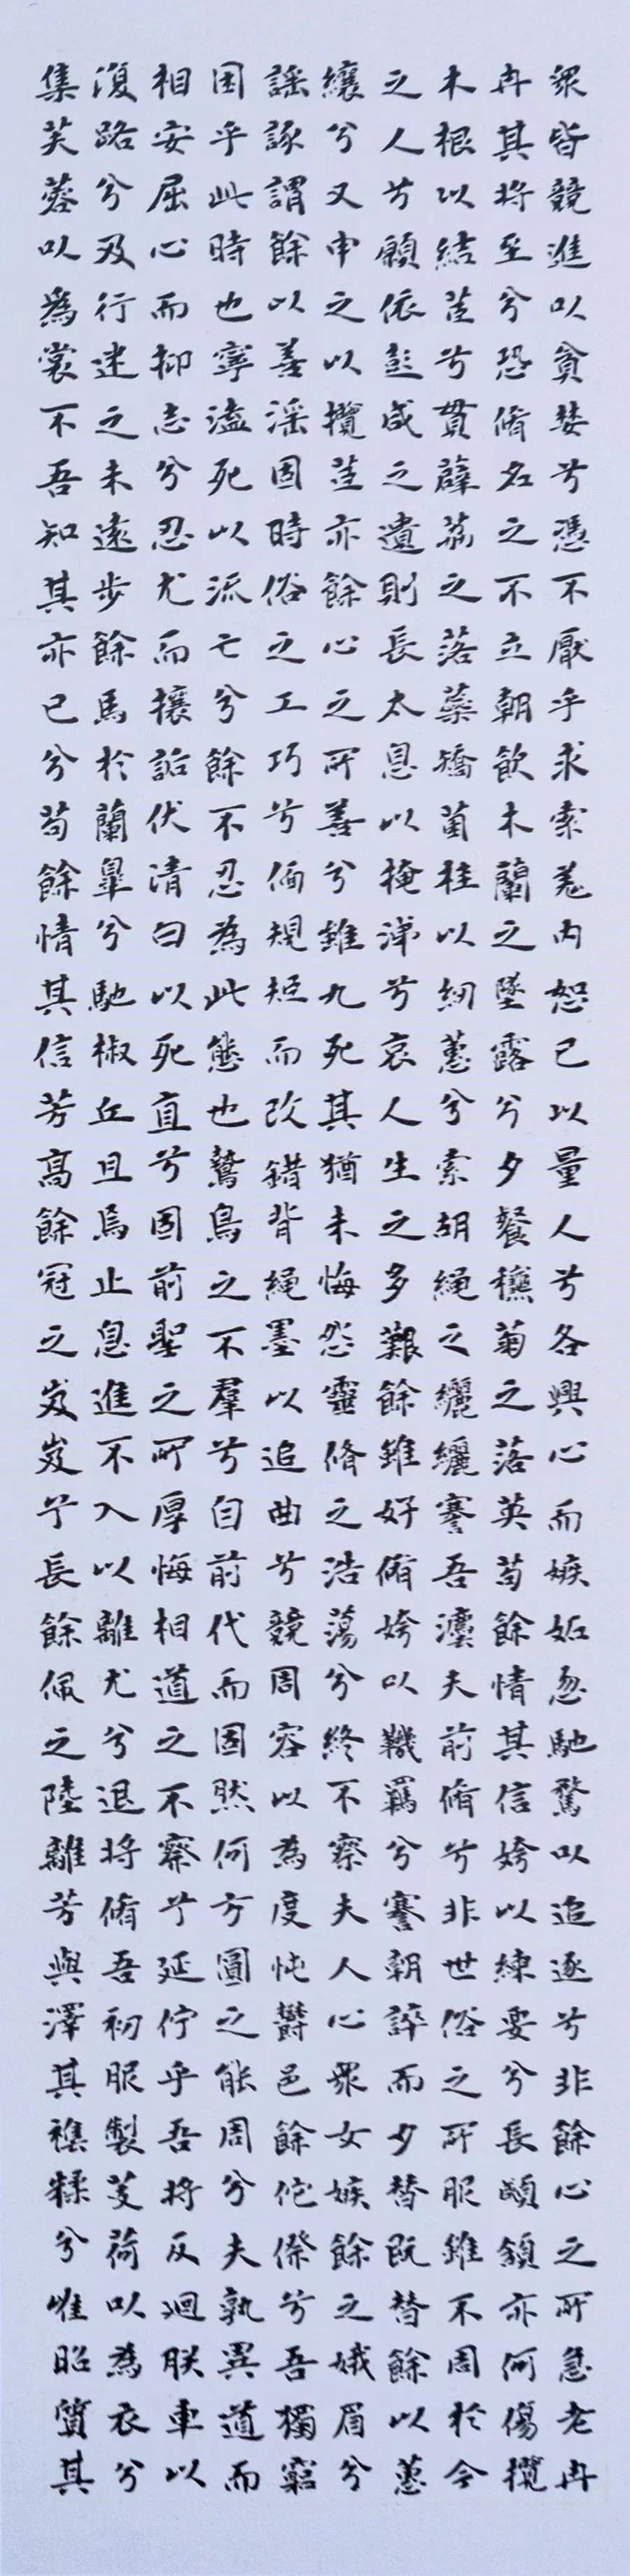 眾皆競進以貪婪兮憑不厭乎求索羌內恕己以量人兮各興心而嫉妬忽馳騖以追逐兮非餘心之所急老冉
冉其將至兮恐脩名之不立朝飲木蘭之墜露兮夕餐穐菊之落英苟餘情其信姱以練要兮長顑頷亦何傷攬
木根以結茝兮貫薜荔之落蘂矯菌桂以紉蕙兮索胡繩之纚纚謇吾灋夫前脩兮非世俗之所服雖不周於今
之人兮願依彭咸之遺則長太息以掩涕兮哀人生之多艱餘雖好脩姱以鞿羈兮謇朝誶而夕替既替餘以蕙
纕兮又申之以攬茝亦餘心之所善兮雖九死其猶未悔怨靈脩之浩蕩兮終不察夫人心眾女嫉餘之娥眉兮
謠諑謂餘以善淫固時俗之工巧兮偭規矩而改錯背繩墨以追曲兮競周容以為度忳鬱邑餘佗傺兮吾獨窮
困乎此時也寧溘死以流亡兮餘不忍為此態也鷙鳥之不羣兮自前代而固然何方圓之能周兮夫孰異道而
相安屈心而抑志兮忍尤而攘詬伏清白以死直兮固前聖之所厚悔相道之不察兮延佇乎吾將反廻朕車以
復路兮及行迷之未遠步餘馬於蘭皋兮馳椒丘且焉止息進不入以離尤兮退將脩吾初服製芰荷以為衣兮
集芙蓉以為裳不吾知其亦已兮苟餘情其信芳高餘冠之岌岌兮長餘佩之陸離芳與澤其襍糅兮惟昭質其